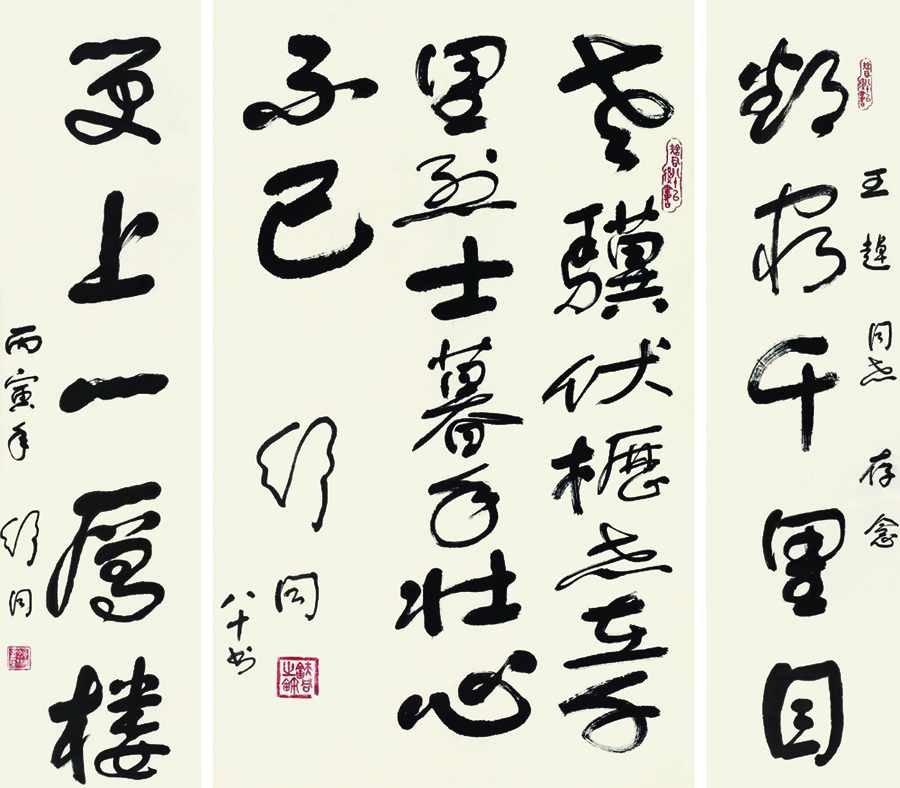 王趠同志 存念
欲窮千里目
老驥伏櫪志在千
里烈士暮年壮心
不已
舒同
八十书
更上一層楼
丙寅年 舒同